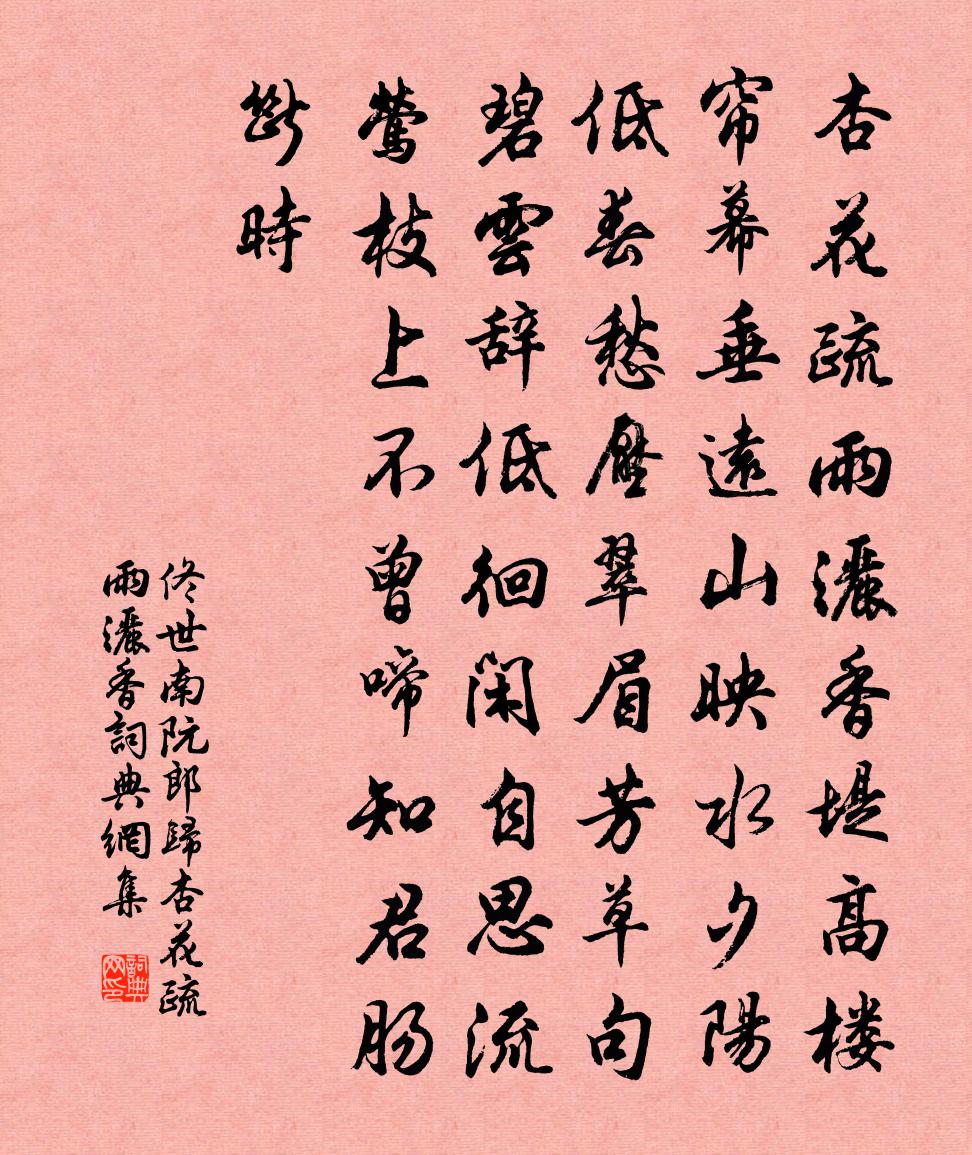 杏花疏雨灑香堤高楼
帘幕垂遠山映水夕陽
低春愁壓翠眉芳草句
碧雲辞低徊闲自思流
鶯枝上不曾啼知君肠
斷時
佟世南阮郎歸杏花疏
雨灑香詞典網集
詞典网印